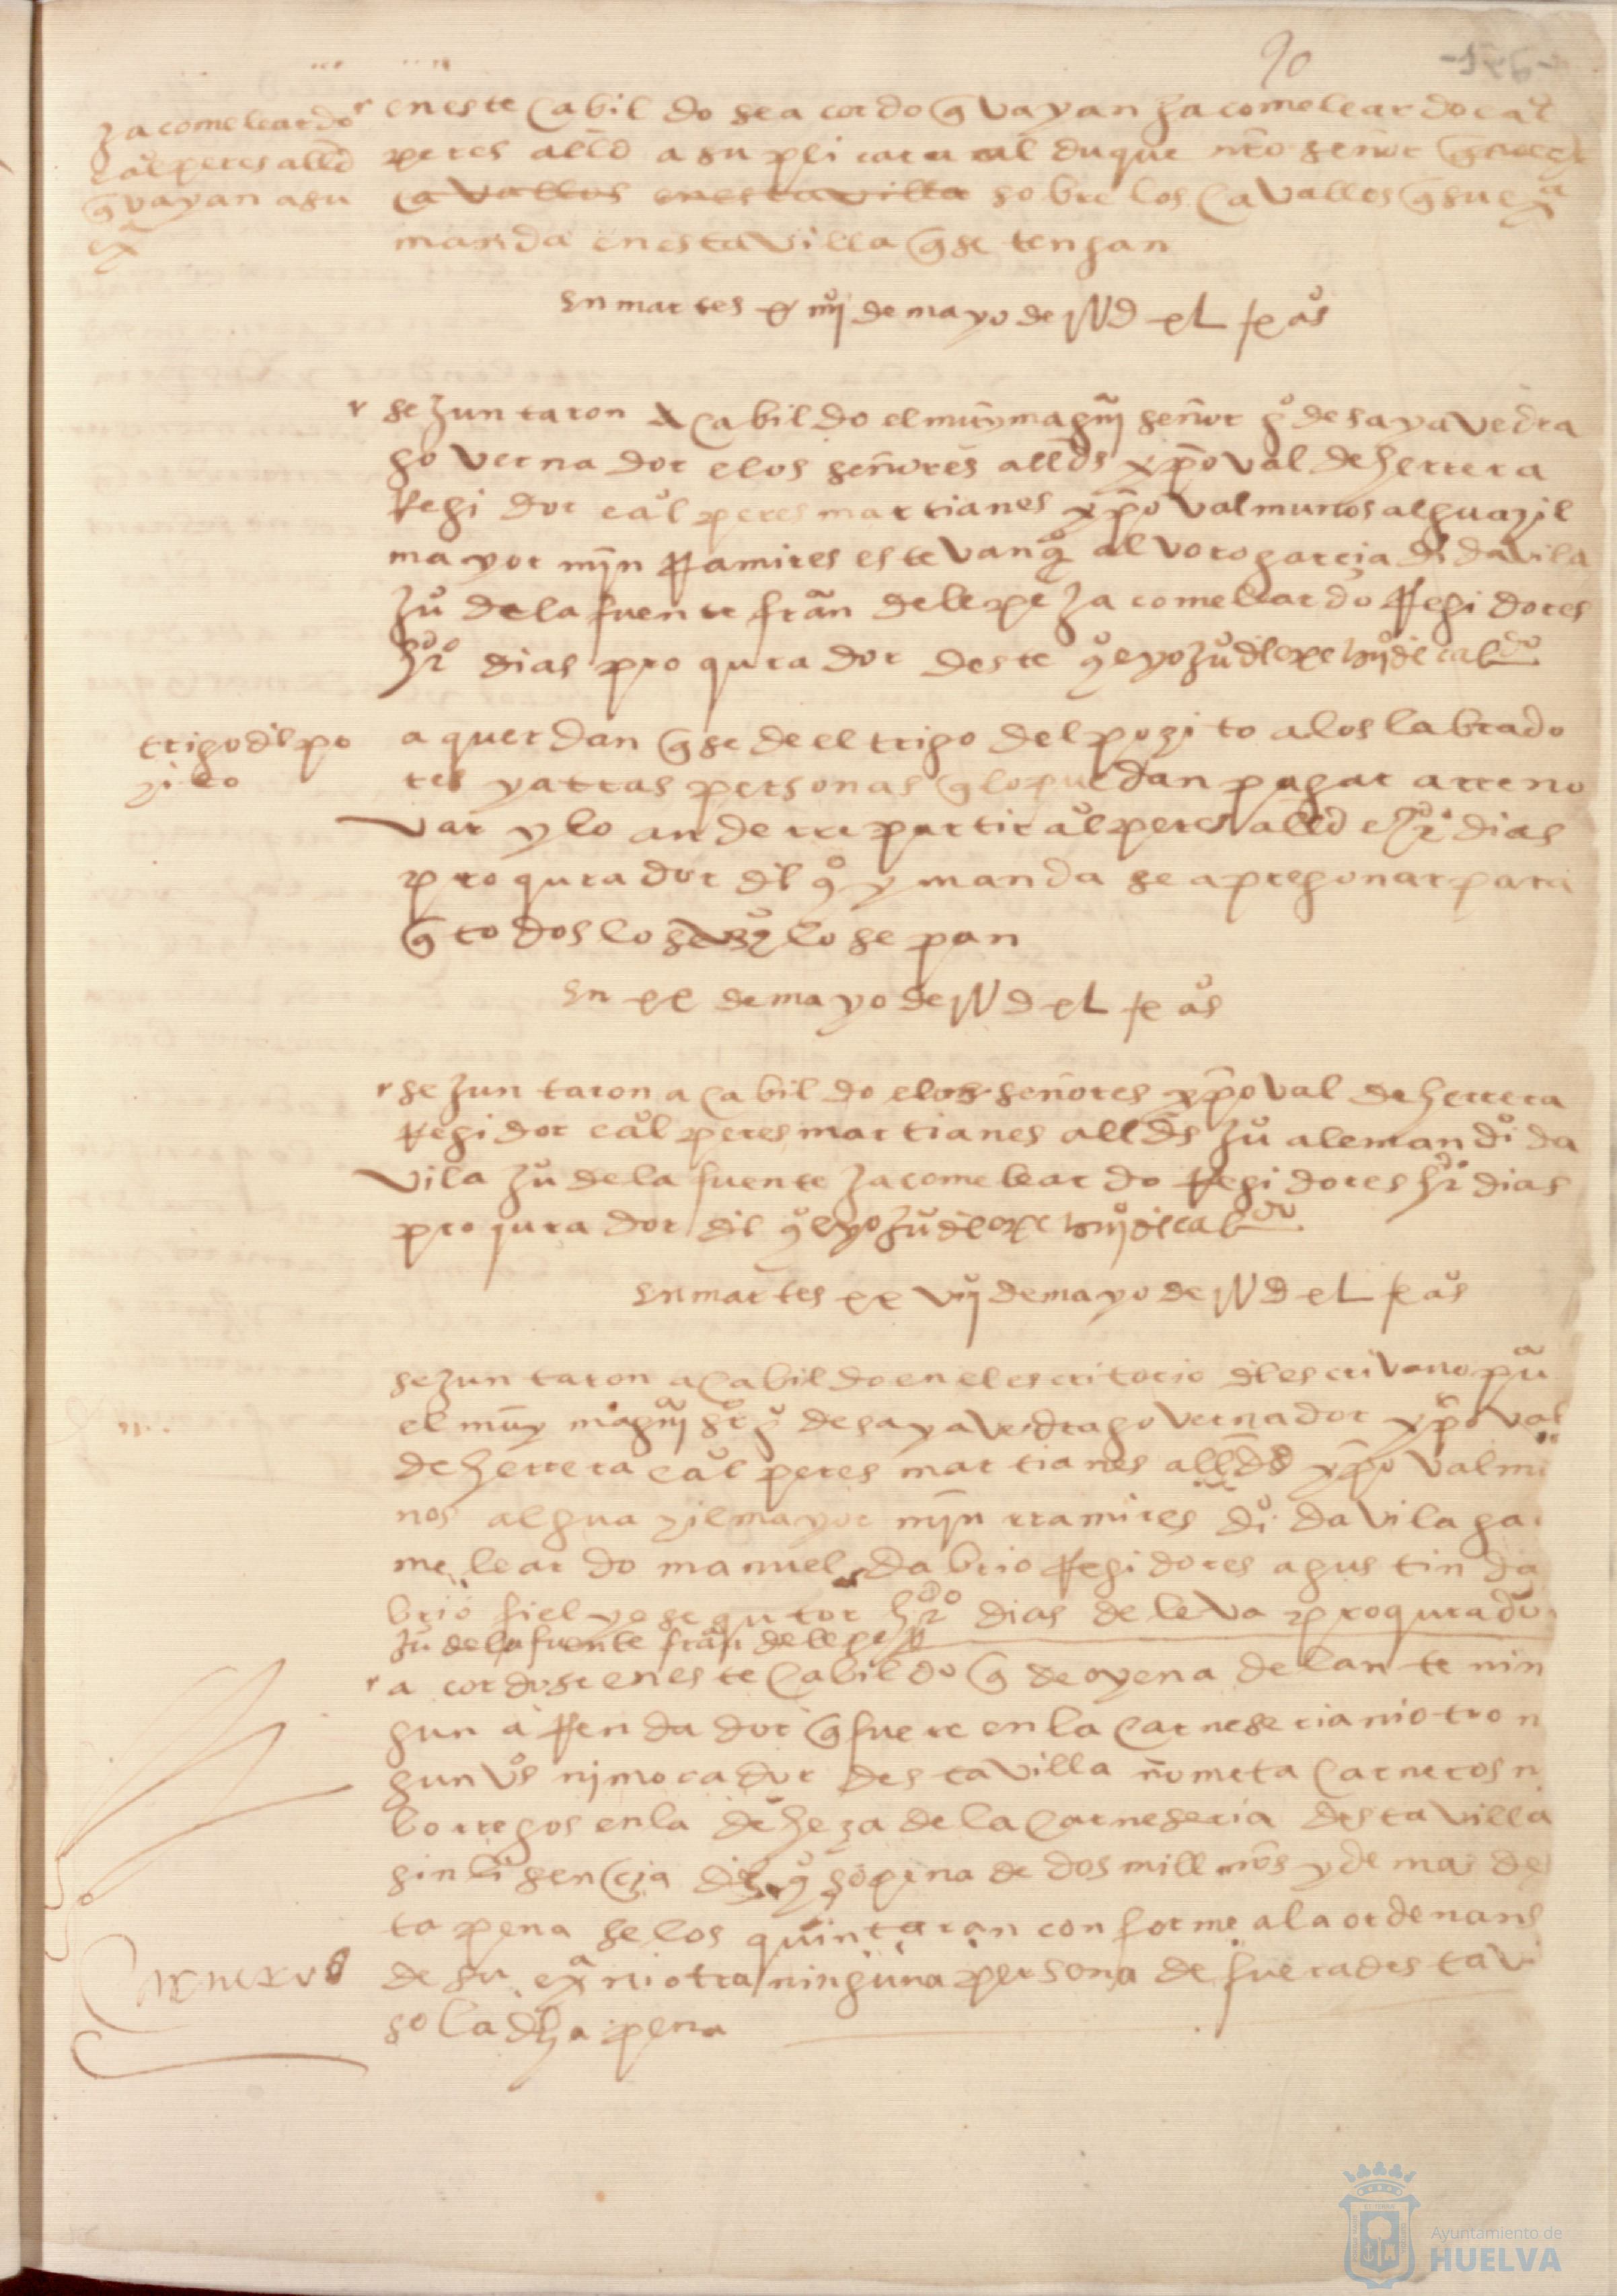 90
en este cabildo se acordo q̃ vayan jacome leardo e aº̃l
peres alld̃ a suplicar al duque nr̃o señor
cavallos en esta villa sobre los cavallos q̃ su exª
manda en esta villa q̃ se tengan
jacome leardo
e aº̃l peres alld̃
q̃ vayan a su
exª
en martes x iiijº de mayo de IV d xL ix aºs
se juntaron a cabildo el muy magcº señor gº de sayavedra
governador e los señores alld̃s xp̃oval de herrera
Regidor e aº̃l peres martianes xp̃oval munos alguazil
mayor mỹn Ramires estevan alvoro garcia diº davila
juº de la fuente frañ de lepe jacome leardo Regidores
hrrdº dias proqurador deste qº e yo juº de lepe esnº de cabdº
trigo del po
zito
aquerdan q̃ se de el trigo del pozito a los labrado
res y a tras personas q̃ lo puedan pagar a rreno
var y lo an de rrepartir aº̃l peres alld̃ e hrrdº dias
proqurador del qº y manda se apregonar para
q̃ todos lo lo sepan
en xx de mayo de IV d xL ix aºs
se juntaron a cabildo los señores xp̃oval de herrera
Regidor e aº̃l peres martianes alld̃s juº aleman diº da
vila juº de la fuente jacome leardo Regidores hrrdº dias
proqurador del qº e yo juº de lepe esnº de cabdº
en martes xx viijº de mayo de IV d xL ix aºs
se juntaron a cabildo en el escritorio del escrivano puº
el muy magcº sºr gº de sayavedra governador xp̃oval
de herrera e aº̃l peres martianes alld̃s xp̃oval mu
nos alguazil mayor mỹn rramires diº davila ja
me leardo manuel dabrio Regidores agustin da
brio fiel y esequtor hrrdº dias de leva proqurador
juº de la fuente frañ de lepe
acordose en este cabildo q̃ de oy en adelante nin
gun aRendador q̃ fuere en la carneseria ni otro n
gun vº nj morador desta villa no meta carneros n
borregos en la deheza de la carneseria desta villa
sin lisencia del qº so pena de dos mill mrs̃ y demas des
ta pena se los quintaran conforme a la ordenans
de su exª ni otra ninguna persona de fuera desta vi
so la dha pena
Carneros
Ayuntamiento de
HUELVA